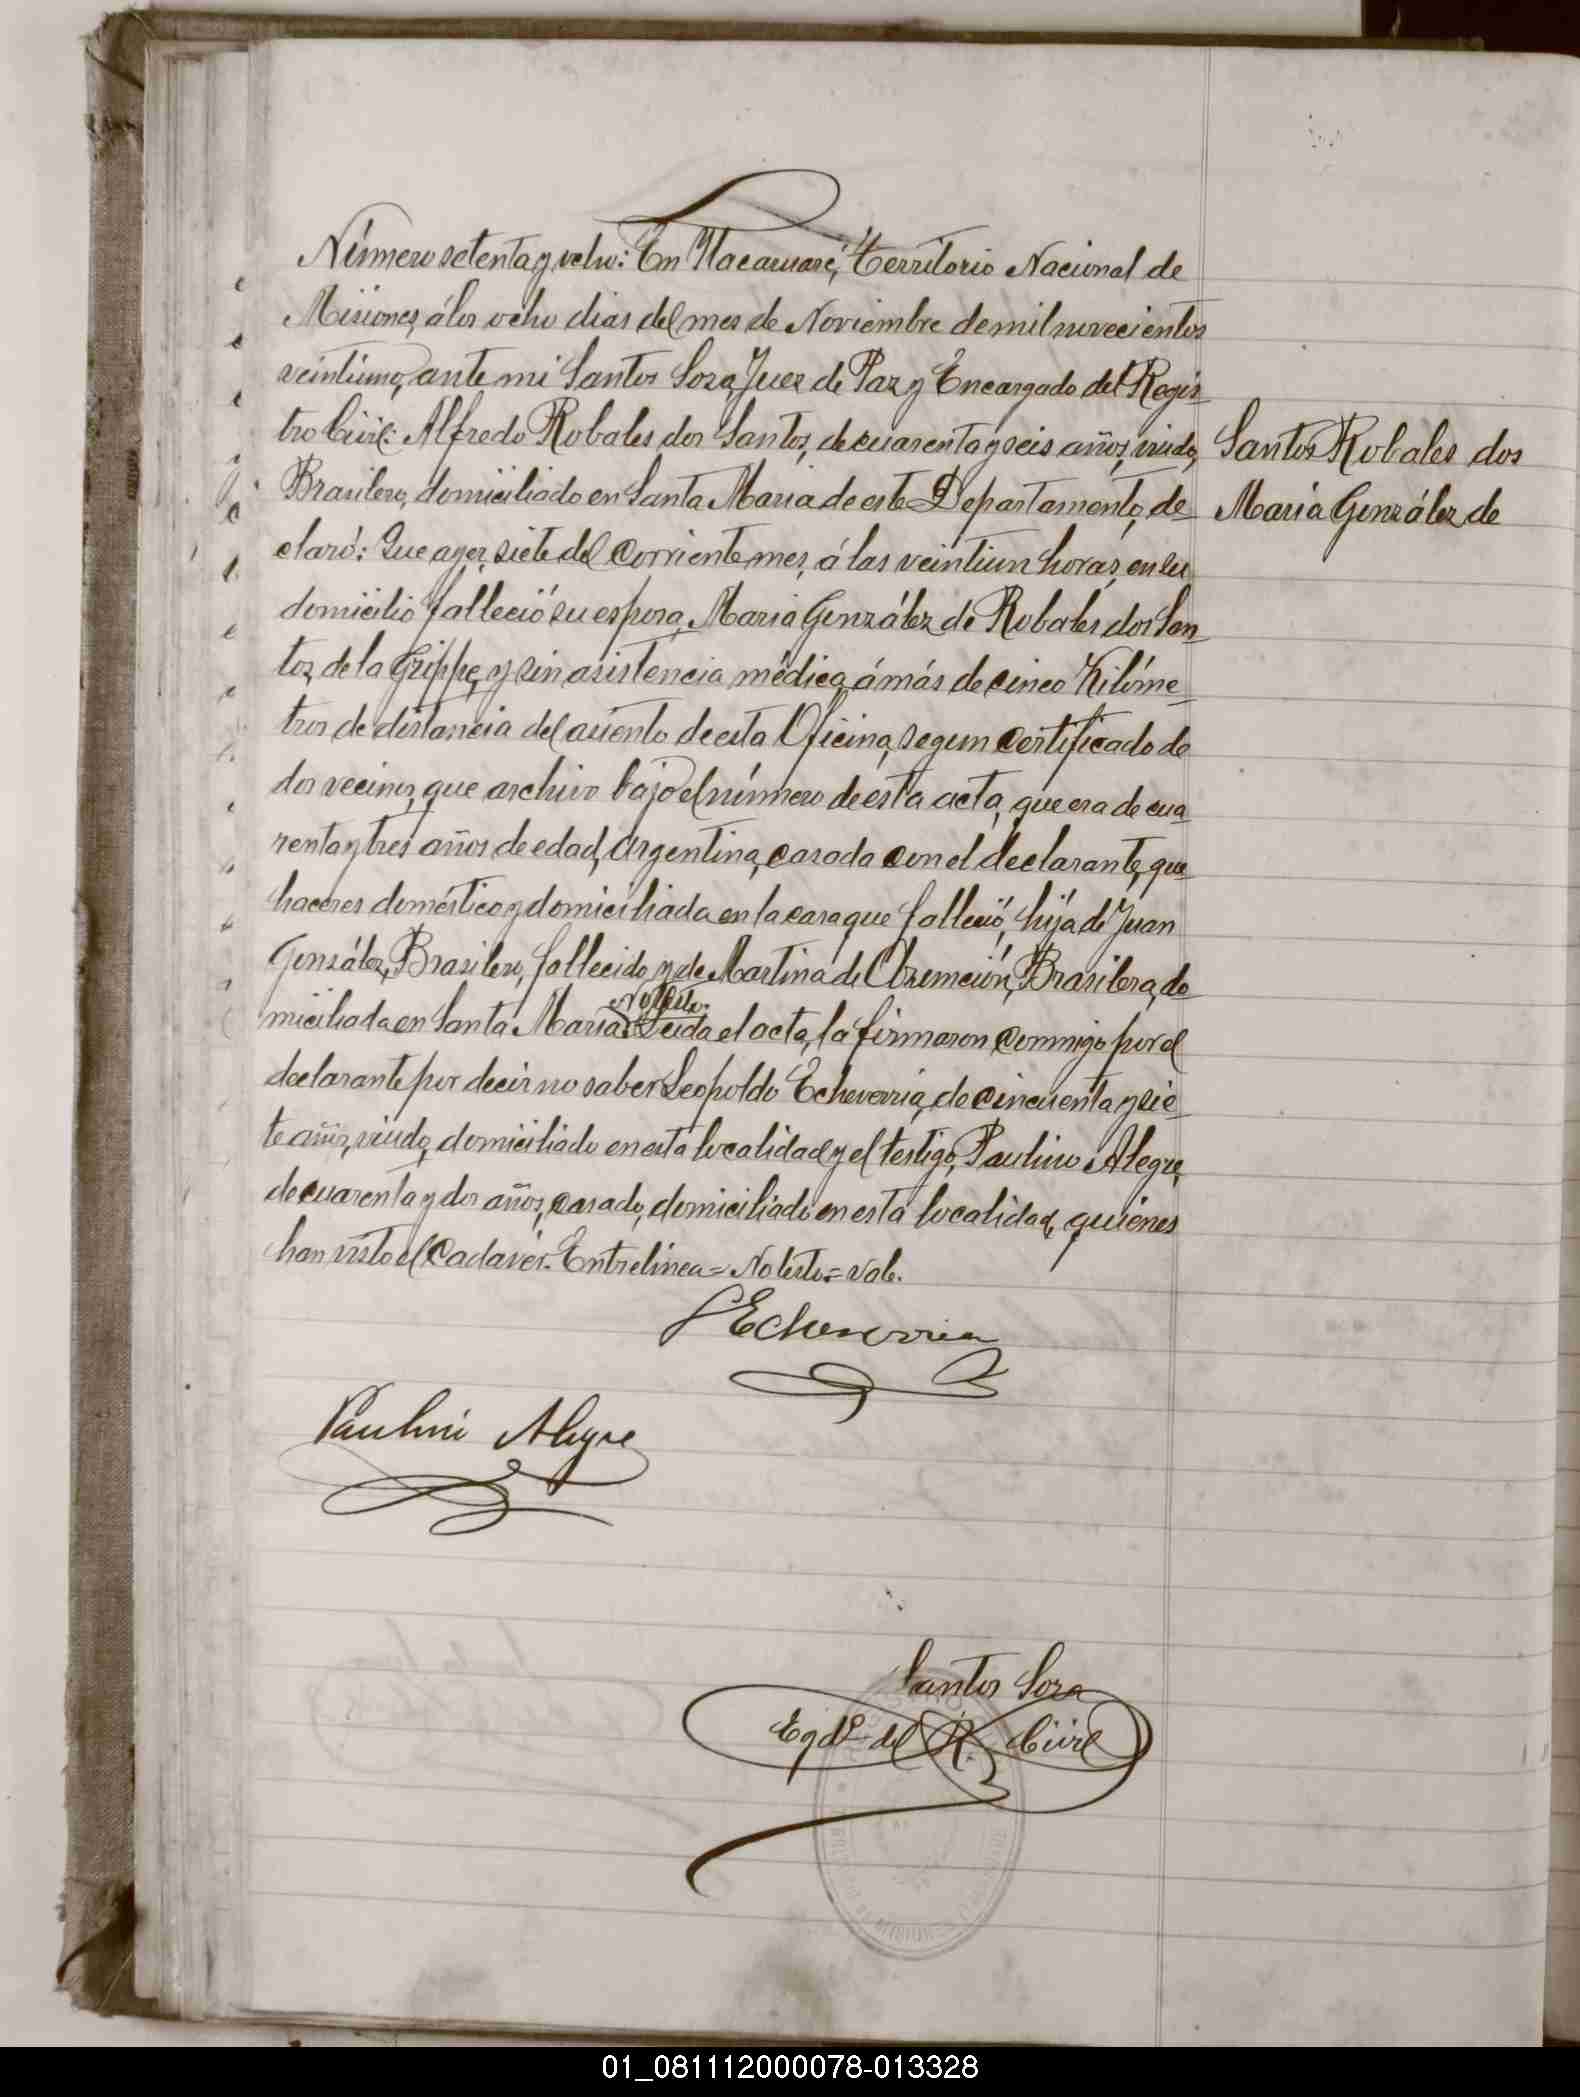 Número setenta y ocho: En Itacaruaré, Territorio Nacional de
Misiones, á los ocho dias del mes de Noviembre de mil novecientos
veintiuno, ante mi Santos Soza, Juez de Paz y Encargado del Regis-
tro Civil: Alfredo Robales dos Santos, de cuarenta y seis años, viudo,
Brasilero, domiciliado en Santa Maria de este Departamento, de-
claró: Que ayer, siete del corriente mes, á las veintiun horas, en su
domicilio falleció su esposa, Maria González de Robales dos San-
tos, de la Grippe, y sin asistencia médica, á más de cinco Kilóme-
tros de distancia del asiento de esta Oficina, segun certificado de
dos vecinos, que archivo bajo el número de esta acta, que era de cua-
renta y tres años de edad, Argentina, casada con el declarante, que
haceres doméstico y domiciliada en la casa que falleció, hija de Juan
González, Brasilero, fallecido y de Martina de Asunción, Brasilera, do
No testo.
miciliada en Santa Maria. Leida el acta, la firmaron conmigo por el
declarante por decir no saber Leopoldo Echeverria, de cincuenta y sie-
te años, viudo, domiciliado en esta localidad y el testigo, Paulino Alegre,
de cuarenta y dos años, casado, domiciliado en esta localidad, quienes
han visto el Cadaver. Entrelinea = No testo = Vale.
Santos Robales dos
Maria González de
L Echeverria
Paulino Alegre
Santos Soza
Egdo. del R. Civil
01_081112000078-013328